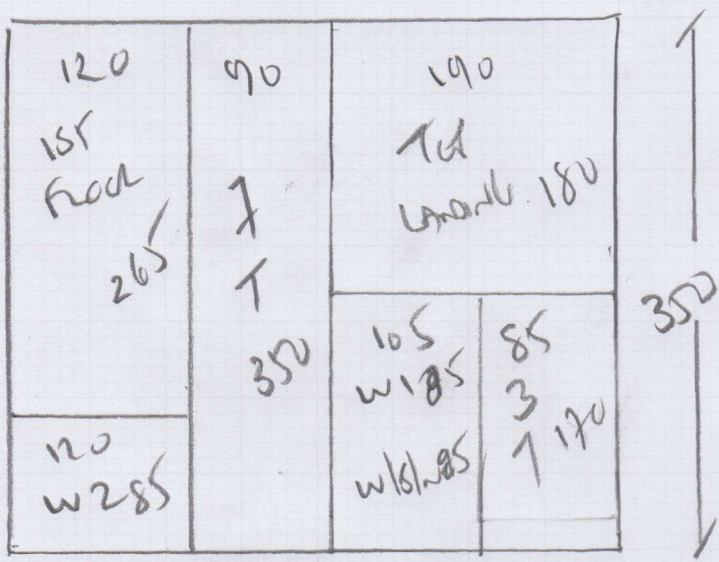 120
1ST
FLOOR
265
120
W2 85
90
7
T
350
190
TOP
LANDING 180
105
W1 85
W/S/W 85
85
3
T 170
350